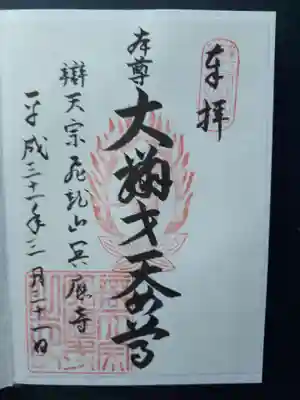 奉拝
本尊
大辯才天女尊
辯天宗飛龍山冥應寺
平成三十一年三月二十一日